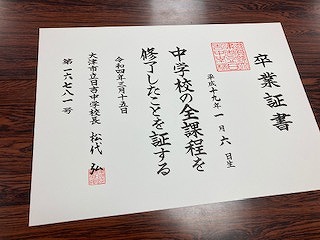 卒業証書
平成十九年一月六日生
中学校の全課程を
修了したことを証する
令和四年三月十五日
大津市立日吉中学校長 松代 弘
第一六七八一号